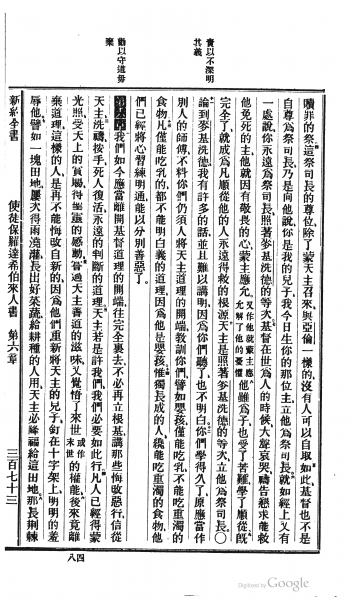 責以不深明
其義
勸以守道毋
棄
贖罪的祭這祭司長的尊位除了蒙天主召來與亞倫一樣的沒有人可以自取如此基督也不是
自尊為祭司長乃是向他說你是我的兒子我今日生你的那位主立他為祭司長就如經上又有
一處說你永遠為祭司長照著麥基洗德的等次基督在世為人的時候大聲哀哭禱告懇求能救
他免死的主他就因有敬畏的心蒙主應允 他雖為子也受了苦難學了順從旣
完全了就成為凡順從他的人永遠得救的根源天主是照著麥基洗德的等次立他為祭司長〇
論到麥基洗德我有許多的話並且難以講明因為你們聽了也不明白你們學得久了原應當作
別人的師傅不料你們仍須人將天主道理的開端教訓你們譬如嬰孩僅能吃乳不能吃重濁的
食物凡僅能吃乳的都不能明白義的道理因為他是嬰孩惟獨長成的人纔能吃重濁的食物他
們已經將心習練明通能以分別善惡了
我們如今應當離開基督道理的開端往完全裏去不必再立根基講那些悔改惡行信從
天主洗禱按手死人復活永遠的判斷的道理天主若是許我們我們必要如此行凡人已經得蒙
光照受天上的賞賜得聖靈的感動嘗過天主善道的滋味又覺悟了來世 或作末世 的權能後來竟離
棄道理這樣的人是再不能悔改自新的因為他們重新將天主的兒子釘在十字架上明明的羞
辱他譬如一塊田地屢次得雨澆灌長出好菜蔬給耕種的人用天主必降福給這田地那長荊棘
新約全書 使徒保羅達希伯來人書 第六章 三百七十三
四八
Digitized by Google